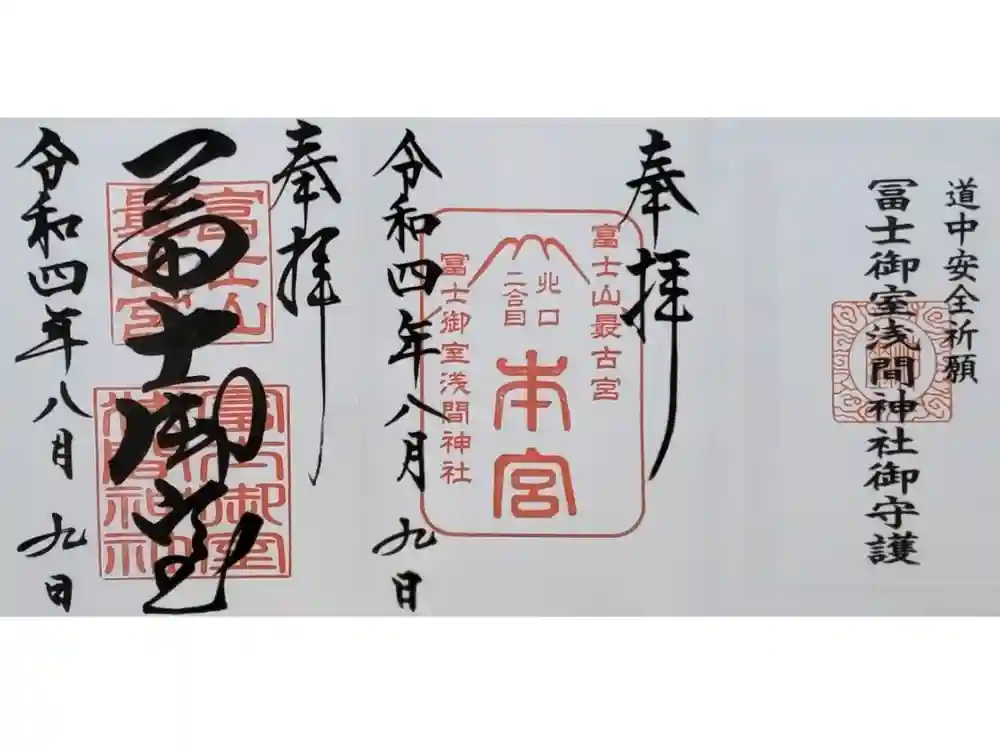 道中安全祈願
冨士御室浅間神社御守護
奉拝
富士山最古宮
北口
二合目
本宮
冨士御室浅間神社
令和四年八月九日
奉拝
富士山
最古宮
冨士御室
浅間神社
冨士御室
令和四年八月九日